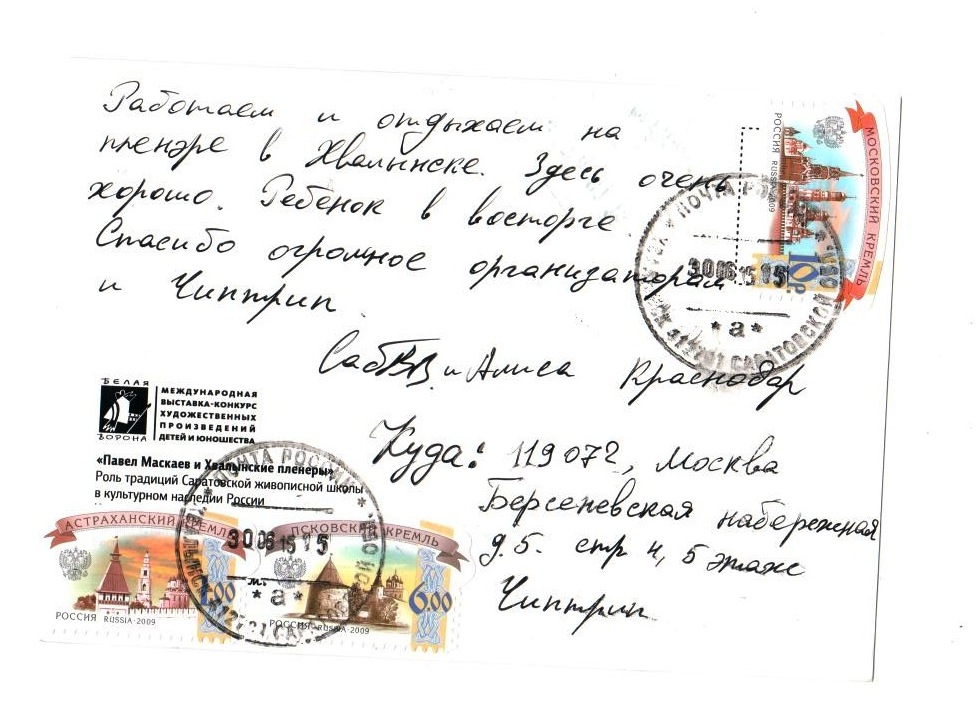 Работаем и отдыхаем на
пленэре в Хвалынске. Здесь очень
хорошо. Ребенок в восторге
Спасибо огромное организаторам
и Чиптрип
МОСКОВСКИЙ КРЕМЛЬ
РОССИЯ RUSSIA·2009
10 р.
ПОЧТА РОССИИ
30 06 15 15
*а*
412781 САРАТОВСКОЙ ОБЛ
СабВВ и Алиса Краснодар
БЕЛАЯ
ВОРОНА
МЕЖДУНАРОДНАЯ
ВЫСТАВКА-КОНКУРС
ХУДОЖЕСТВЕННЫХ
ПРОИЗВЕДЕНИЙ
ДЕТЕЙ И ЮНОШЕСТВА
«Павел Маскаев и Хвалынские пленеры»
Роль традиций Саратовской живописной школы
в культурном наследии России
Куда: 119072, Москва
Берсеневская набережная
д.5. стр 4, 5 этаж
Чиптрип
АСТРАХАНСКИЙ КРЕМЛЬ
РОССИЯ RUSSIA·2009
ПСКОВСКИЙ КРЕМЛЬ
6.00
РОССИЯ RUSSIA·2009
ПОЧТА РОССИИ
30 06 15 15
*а*